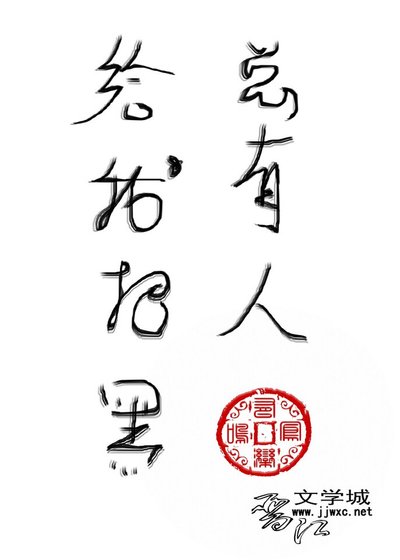 总有人
给我招黑
晋江文学城
www.jjwxc.net